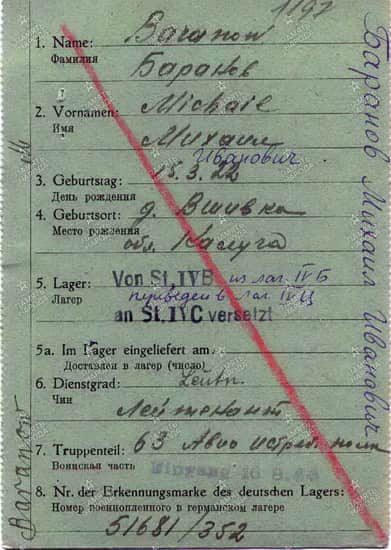 1197
1. Name: Baranow
Фамилия Баранов
2. Vornamen: Michail
Имя Михаил
Иванович
3. Geburtstag: 15.3.22
День рождения
4. Geburtsort: д. Вшивка
Место рождения обл. Калуга
5. Lager: Von St.IVB из лаг. IVБ
Лагерь переведен в лаг. IVЦ
an St.IVC versetzt
5a. Im Lager eingeliefert am:
Доставлен в лагерь (число)
6. Dienstgrad: Leutn.
Чин Лейтенант
7. Truppenteil: 63 Авио истреб. полк
Воинская часть Eingang 16 8.
8. Nr. der Erkennungsmarke des deutschen Lagers:
Номер военнопленного в германском лагере
51681/352
Baranow
Баранов Михаил Иванович